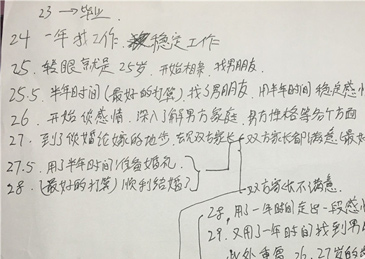 23 → 毕业
24 一年找工作. 稳定工作
25. 转眼就是25岁. 开始相亲. 找男朋友.
25.5. 半年时间(最好的打算)找了男朋友. 用半年时间稳定感情
26. 开始谈感情. 深入了解男方家庭. 男方性格等各个方面
27. 到了谈婚论嫁的地步. 双方家长 双方家长都满意(最好
27.5 用了半年时间准备婚礼.
28. (最好的打算) 顺利结婚了
双方家长不满意.
28. 用了一年时间走出一段感情
29. 又用了一年时间找到男
26. 27岁的